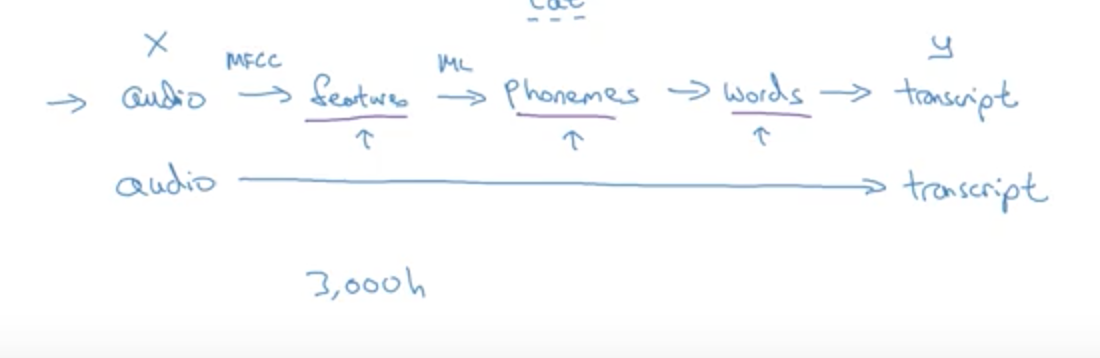 X y
MFCC ML
→ audio → features → Phonemes → words → transcript
audio → transcript
3,000h